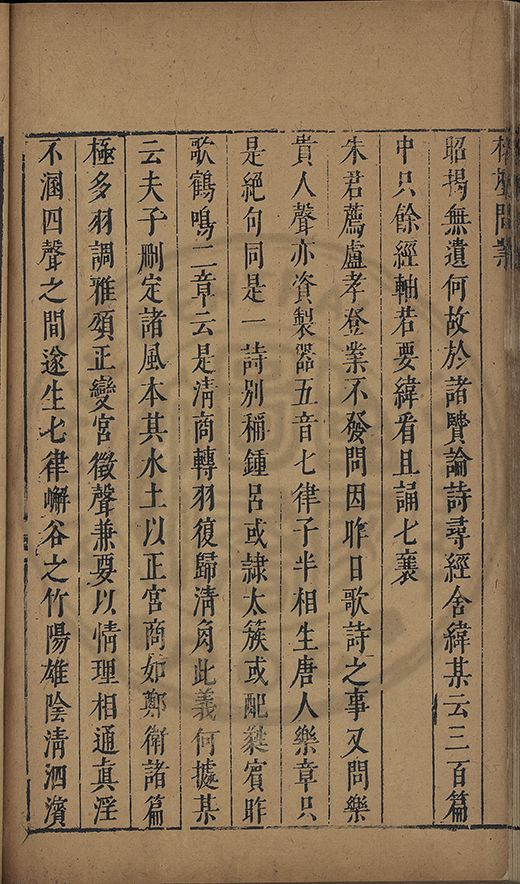 問業
昭揭無遺何故於諸賢論詩尋經舍緯某云三百篇
中只餘經軸若要緯看且誦七襄
朱君薦盧孝登業不發問因昨日歌詩之事又問樂
貴人聲亦資製器五音七律子半相生唐人樂章只
是絕句同是一詩別稱鍾呂或隷太簇或配蕤賓昨
歌鶴鳴二章云是淸商轉羽復歸淸角此義何據某
云夫子刪定諸風本其水土以正宮商如鄭衛諸篇
極多羽調雅頌正變宮徵聲兼要以情理相通真淫
不溷四聲之間遂生七律嶰谷之竹陽雄陰淸泗濱